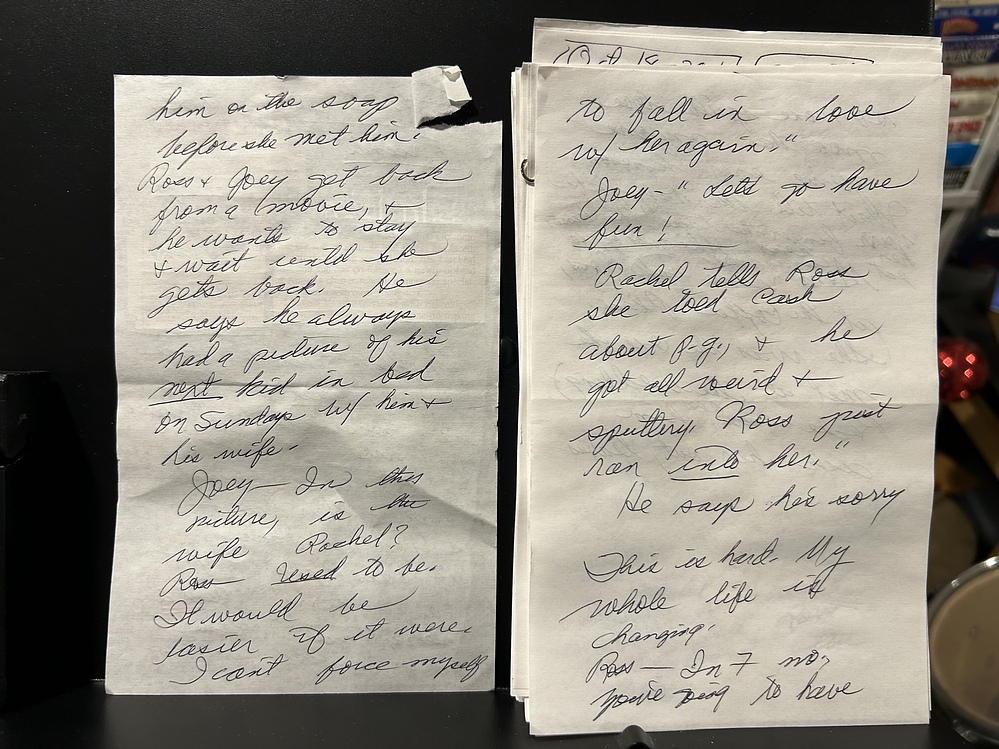 him on the soap
before she met him.
Ross & Joey get back
from a movie, &
he wants to stay
& wait until she
gets back. He
says he always
had a picture of his
next kid in bed
on Sundays w/ him &
his wife.
Joey— In this
picture, is the
wife Rachel?
Ross— Used to be.
It would be
easier if it were.
I can't force myself
to fall in love
w/ her again."
Joey- "Let's go have
fun!
Rachel tells Ross
she told Cash
about p.g., & he
got all weird &
sputtery. Ross just
ran into her."
He says he's sorry
This is hard. My
whole life is
changing.
Ross— In 7 mo,
you're going to have